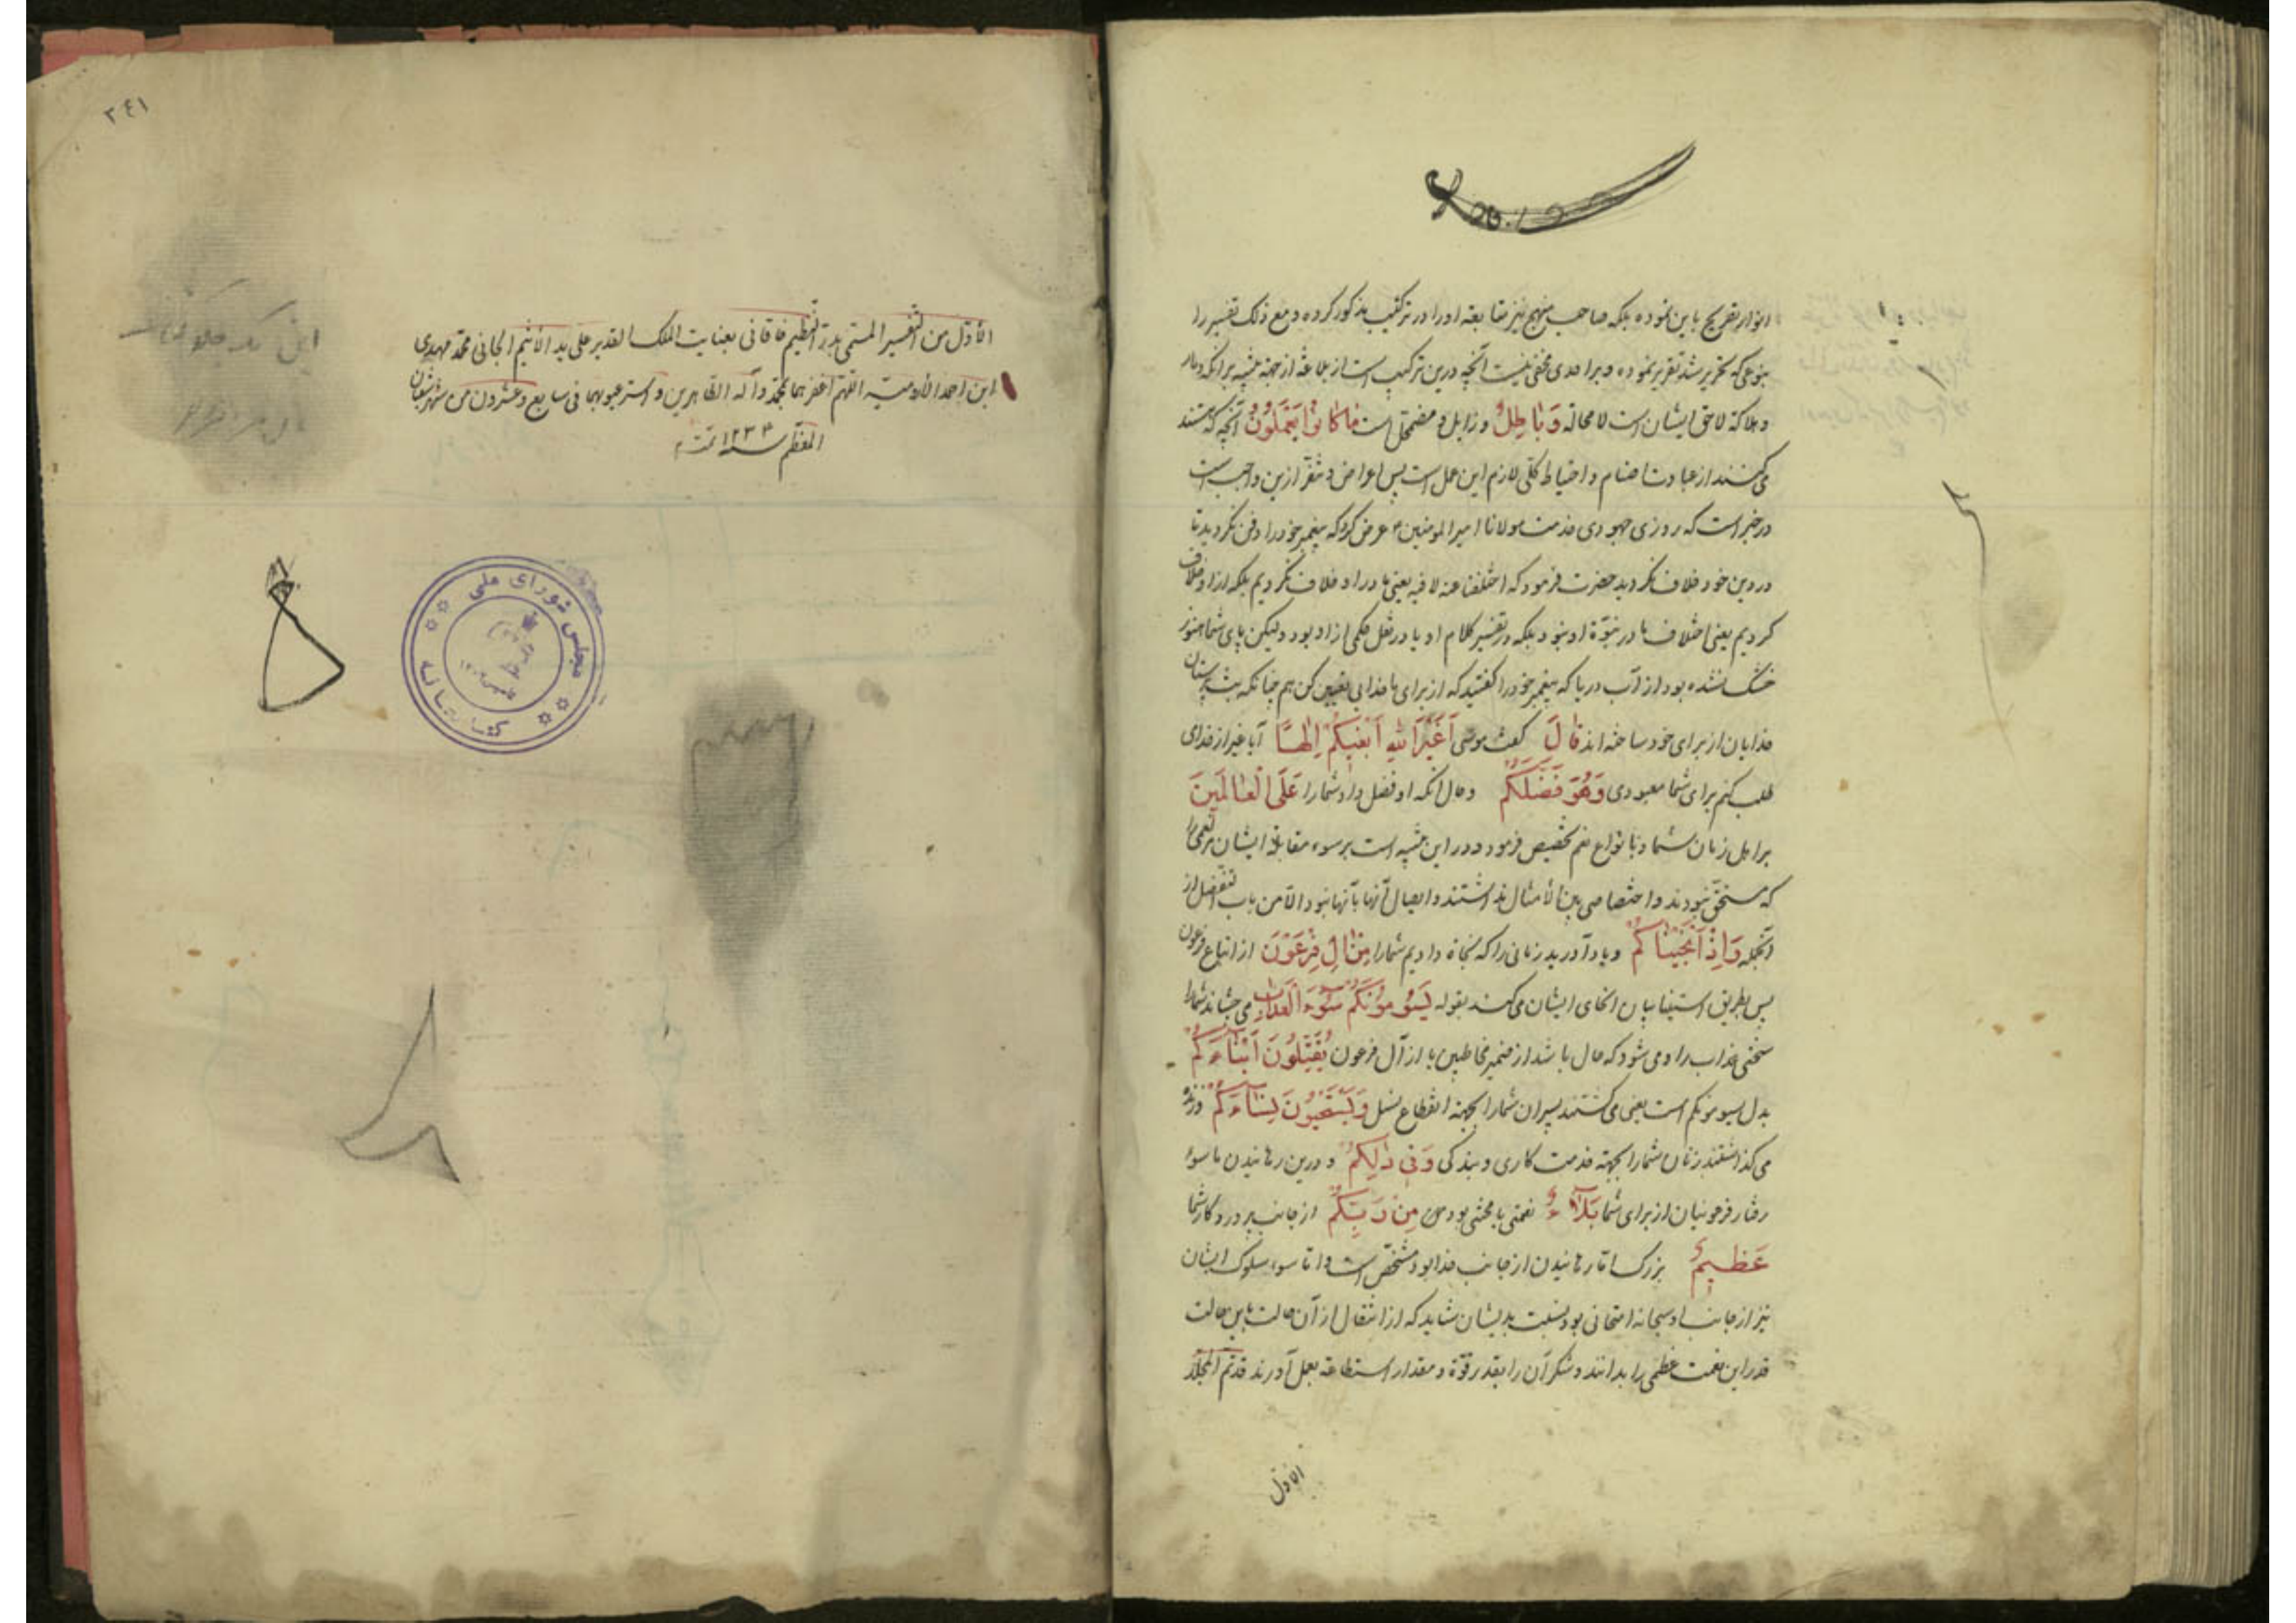 انوار تصریح باین نموده بلکه صاحب منهج نیز متابعة او را در ترکیب مذکور کرده و مع ذلک تفسیر را
بنوعی که تحریر شد تقریر نموده و بر احدی مخفی نیست آنچه درین ترکیب است از بلاغة از جهة تنبیه بر آنکه دمار
و هلاکة لاحق ایشان است لا محالة وَبَاطِلٌ و زایل و مضمحل است مَا كَانُوا يَعْمَلُونَ آنچه که هستند
می‌کنند از عبادت اصنام و احباط کلی لازم این عمل است پس اعراض و تنفر ازین واجب است
در خبر است که روزی جهودی خدمت مولانا امیر المومنین ع عرض کرد که پیغمبر خود را دفن نکردید تا
در دین خود خلاف نکردید حضرت فرمود که اختلفنا عنه لا فیه یعنی ما در او خلاف نکردیم بلکه از او خلاف
کردیم یعنی اختلاف ما در نبوّة او نبود بلکه در تفسیر کلام او یا در نقل حکمی از او بود ولیکن پای شما هنوز
خشک نشده بود از آب دریا که پیغمبر خود را گفتید که از برای ما خدایی تعیین کن هم چنانکه بت پرستان
خدایان از برای خود ساخته‌اند قَالَ گفت موسی أَغَيْرَ اللَّهِ أَبْغِيكُمْ إِلَهًا آیا غیر از خدای
طلب کنم برای شما معبودی وَهُوَ فَضَّلَكُمْ و حال آنکه او فضل داد شما را عَلَى الْعَالَمِينَ
بر اهل زمان شما و بانواع نعم تخصیص فرمود و در این تنبیه است بر سوء مقابلة ایشان مر نعمی را
که مستحق نبودند و اختصاصی بین الأمثال نداشتند و ایصال آنها بآنها نبود الّا من باب التفضل از
آنجمله وَإِذْ أَنْجَيْنَاكُمْ و یاد آورید زمانی را که نجاة دادیم شما را مِنْ آلِ فِرْعَوْنَ از اتباع فرعون
پس بطریق استیناف بیان انجای ایشان می‌کند بقوله يَسُومُونَكُمْ سُوءَ الْعَذَابِ می‌چشاندند شما را
سختی عذاب را و می‌شود که حال باشد از ضمیر مخاطبین یا از آل فرعون يُقَتِّلُونَ أَبْنَاءَكُمْ
بدل یسومونکم است یعنی می‌کشتند پسران شما را بجهة انقطاع نسل وَيَسْتَحْيُونَ نِسَاءَكُمْ و زنده
می‌گذاشتند زنان شما را بجهة خدمت کاری و بندگی وَفِي ذَلِكُمْ و درین رهانیدن یا سوء
رفتار فرعونیان از برای شما بَلَاءٌ نعمتی یا محنتی بود مِنْ رَبِّكُمْ از جانب پروردگار شما
عَظِيمٌ بزرگ امّا رهانیدن از جانب خدا بود مشخّص است و امّا سوء سلوک ایشان
نیز از جانب او سبحانه امتحانی بود نسبت بدیشان شاید که از انتقال از آن حالت باین حالت
قدر این نعمت عظمی را بدانند و شکر آن را بقدر قوّة و مقدار استطاعة بعمل آورند قد تمّ المجلّد
الاول
٢٤١
الأوّل من التفسیر المسمّی بدرّ النظیم خاقانی بعنایت الملک القدیر علی ید الأثیم الجانی محمّد مهدی
ابن احمد اللّهم اغفر لهما بمحمّد وآله الطّاهرین و استر عیوبهما فی سابع و عشرون من شهر شعبان
المعظّم سنة ١٢٣٤ تمّت
مجلس شورای ملی
کتابخانه